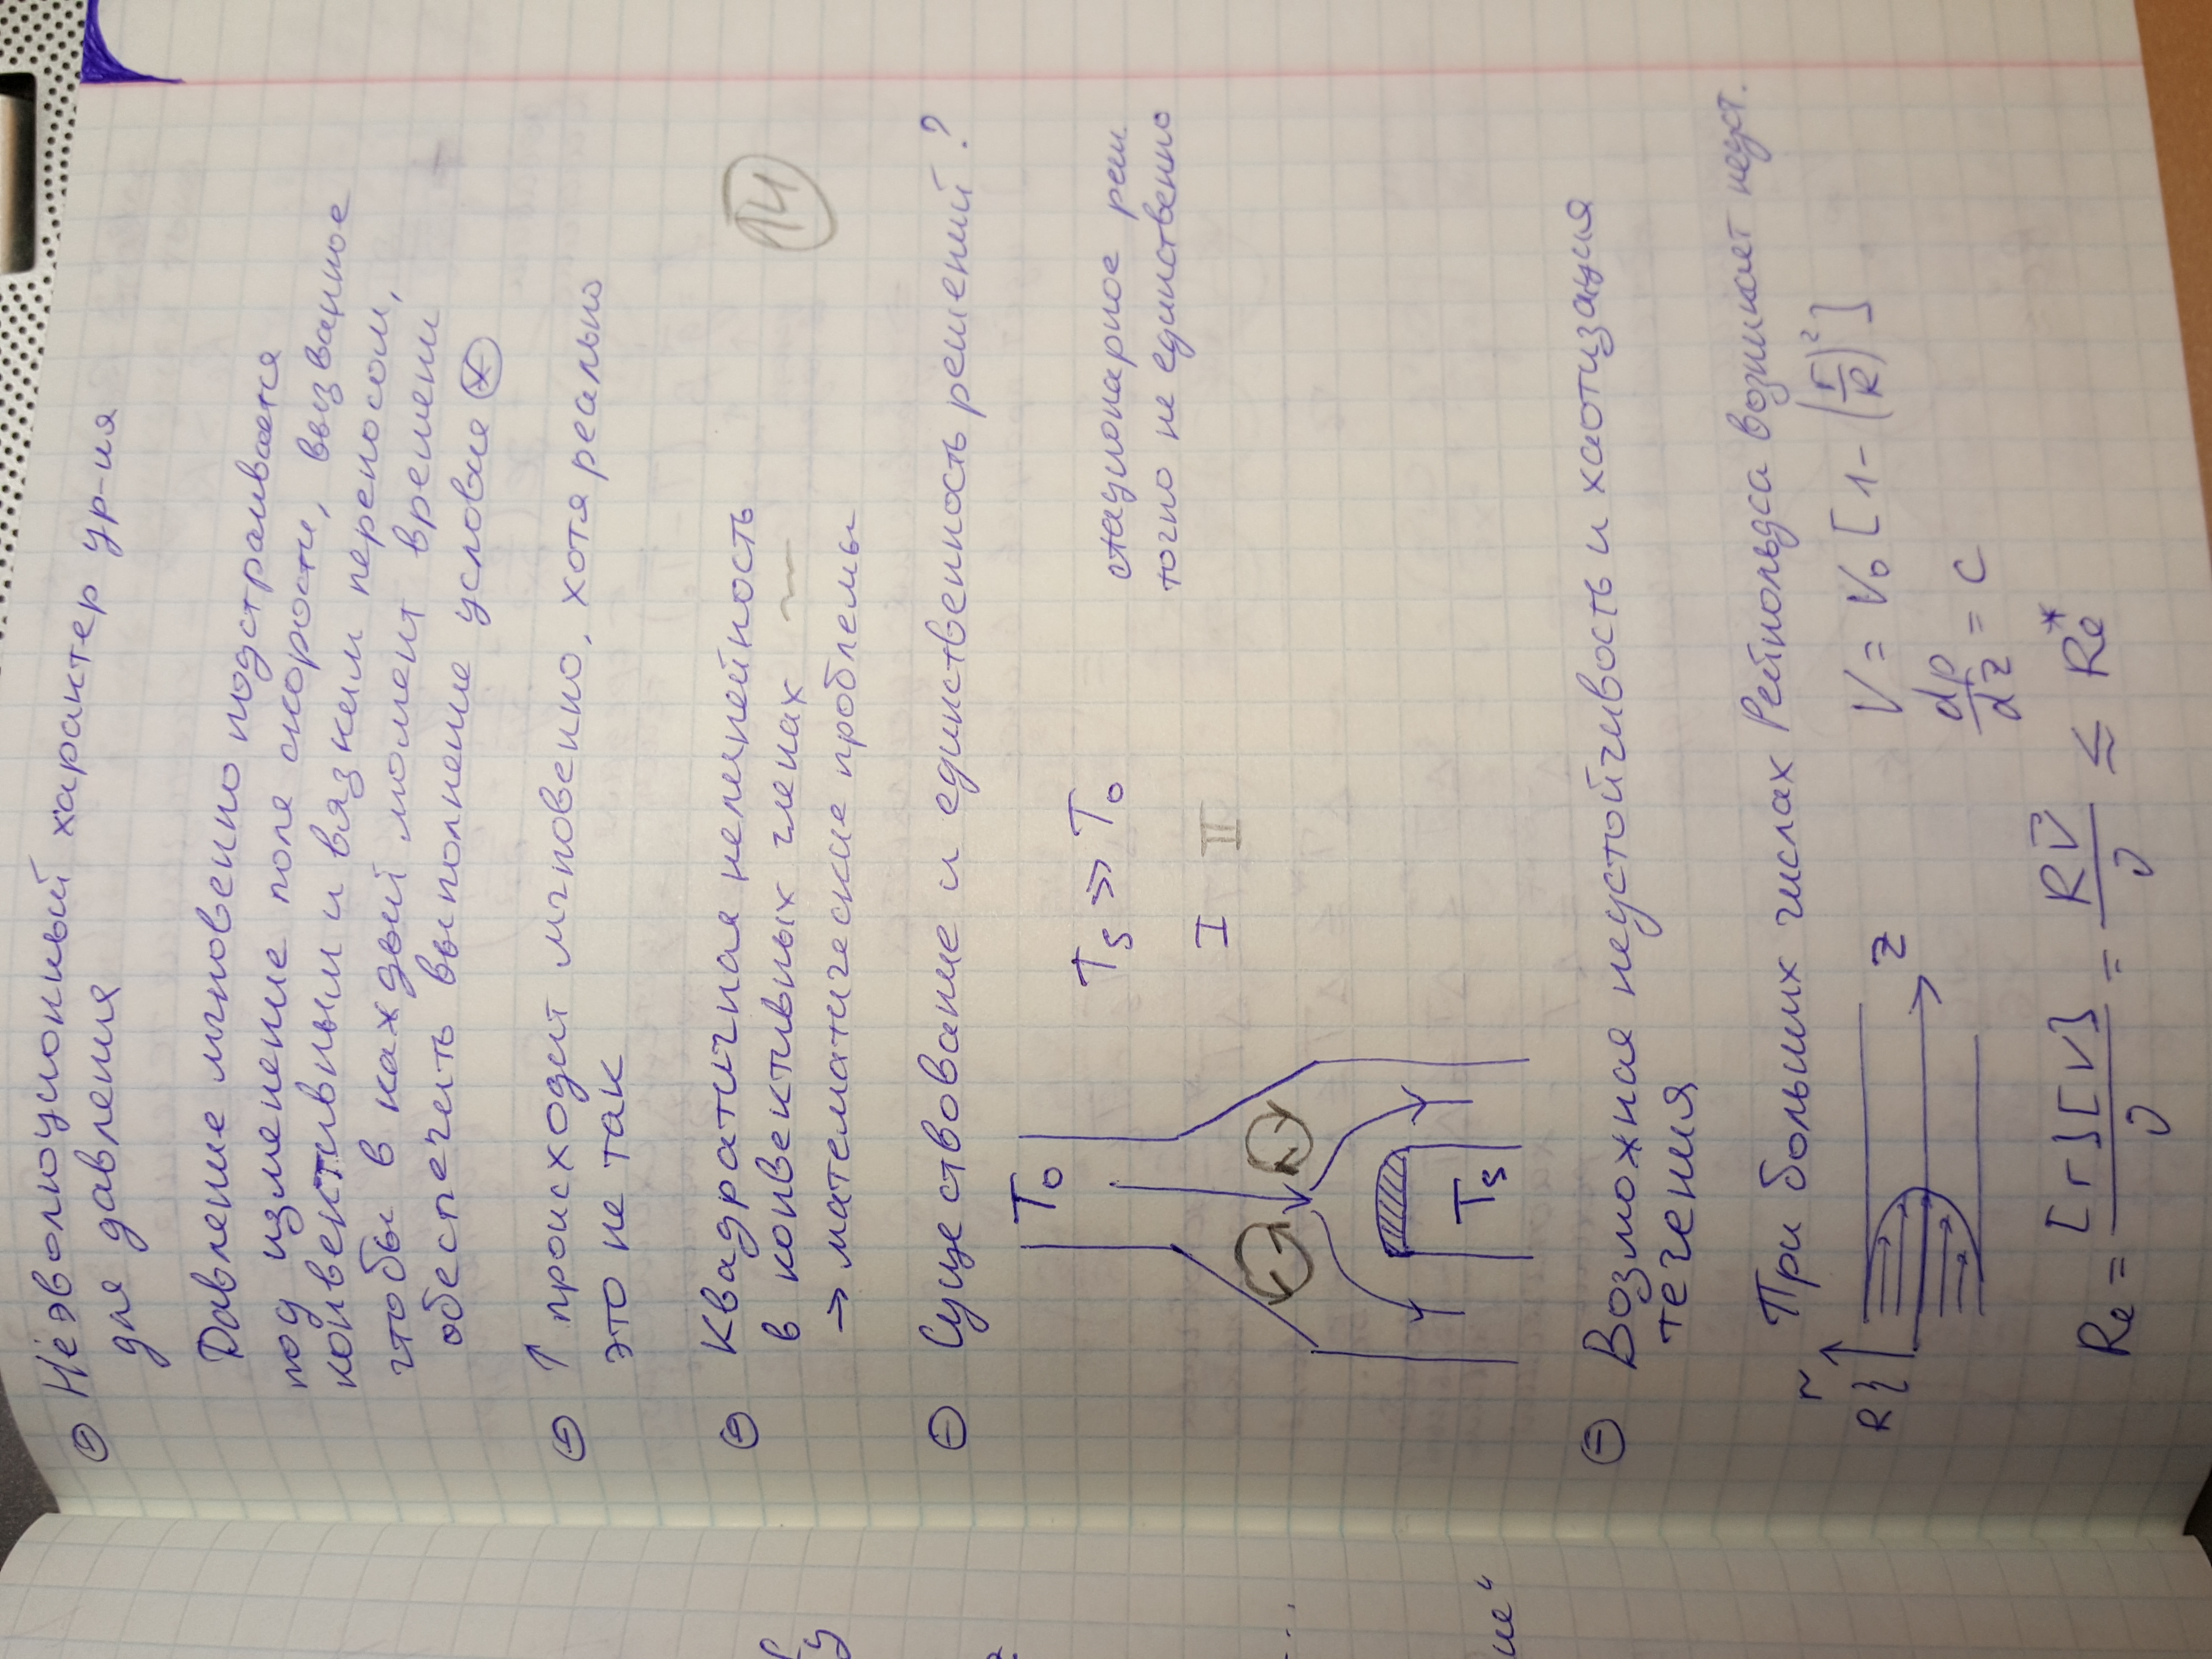 ⊖ Неэволюционный характер ур-ия
для давления
Давление мгновенно подстраивается
под изменение поля скорости, вызванное
конвективным и вязким переносом,
чтобы в каждый момент времени
обеспечить выполнение условия ⊛
⊖ ↑ происходит мгновенно, хотя реально
это не так
⊖ Квадратичная нелинейность
в конвективных членах ~
→ математические проблемы
14
⊖ Существование и единственность решений ?
T₀
T_s ≫ T₀
стационарное реш.
точно не единственно
I II
T_s
⊖ Возможная неустойчивость и хаотизация
течения
При больших числах Рейнольдса возникает неуст.
r
R
z
V = V₀ [1 - (r/R)²]
dp/dz = c
Re = [r][V]/ν = RV̄/ν ≤ Re*
ие"